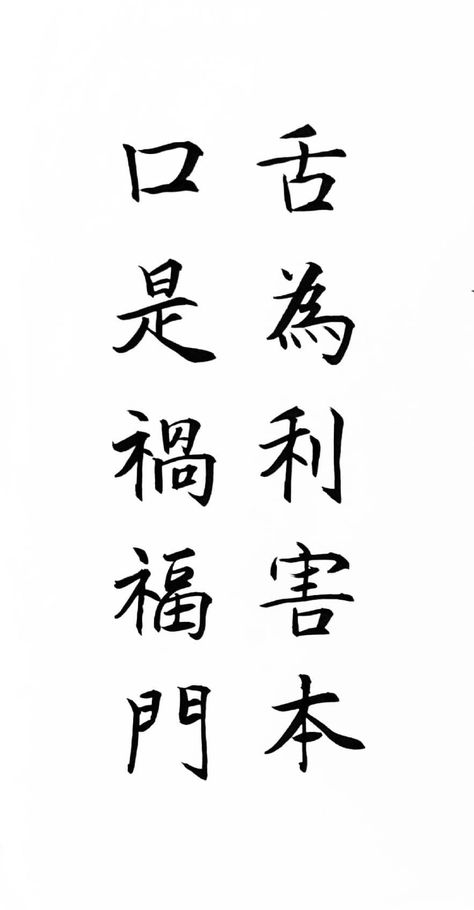 舌為利害本
口是禍福門